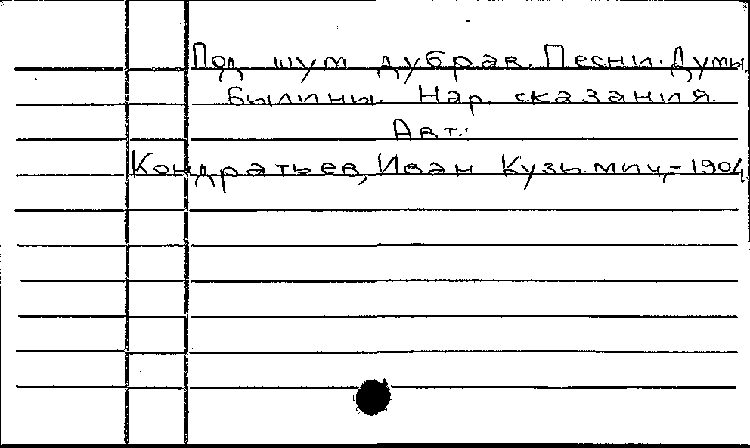 Под шум дубрав. Песни. Думы
былины. Нар. сказания
Авт.:
Кондратьев, Иван Кузьмич,-1904